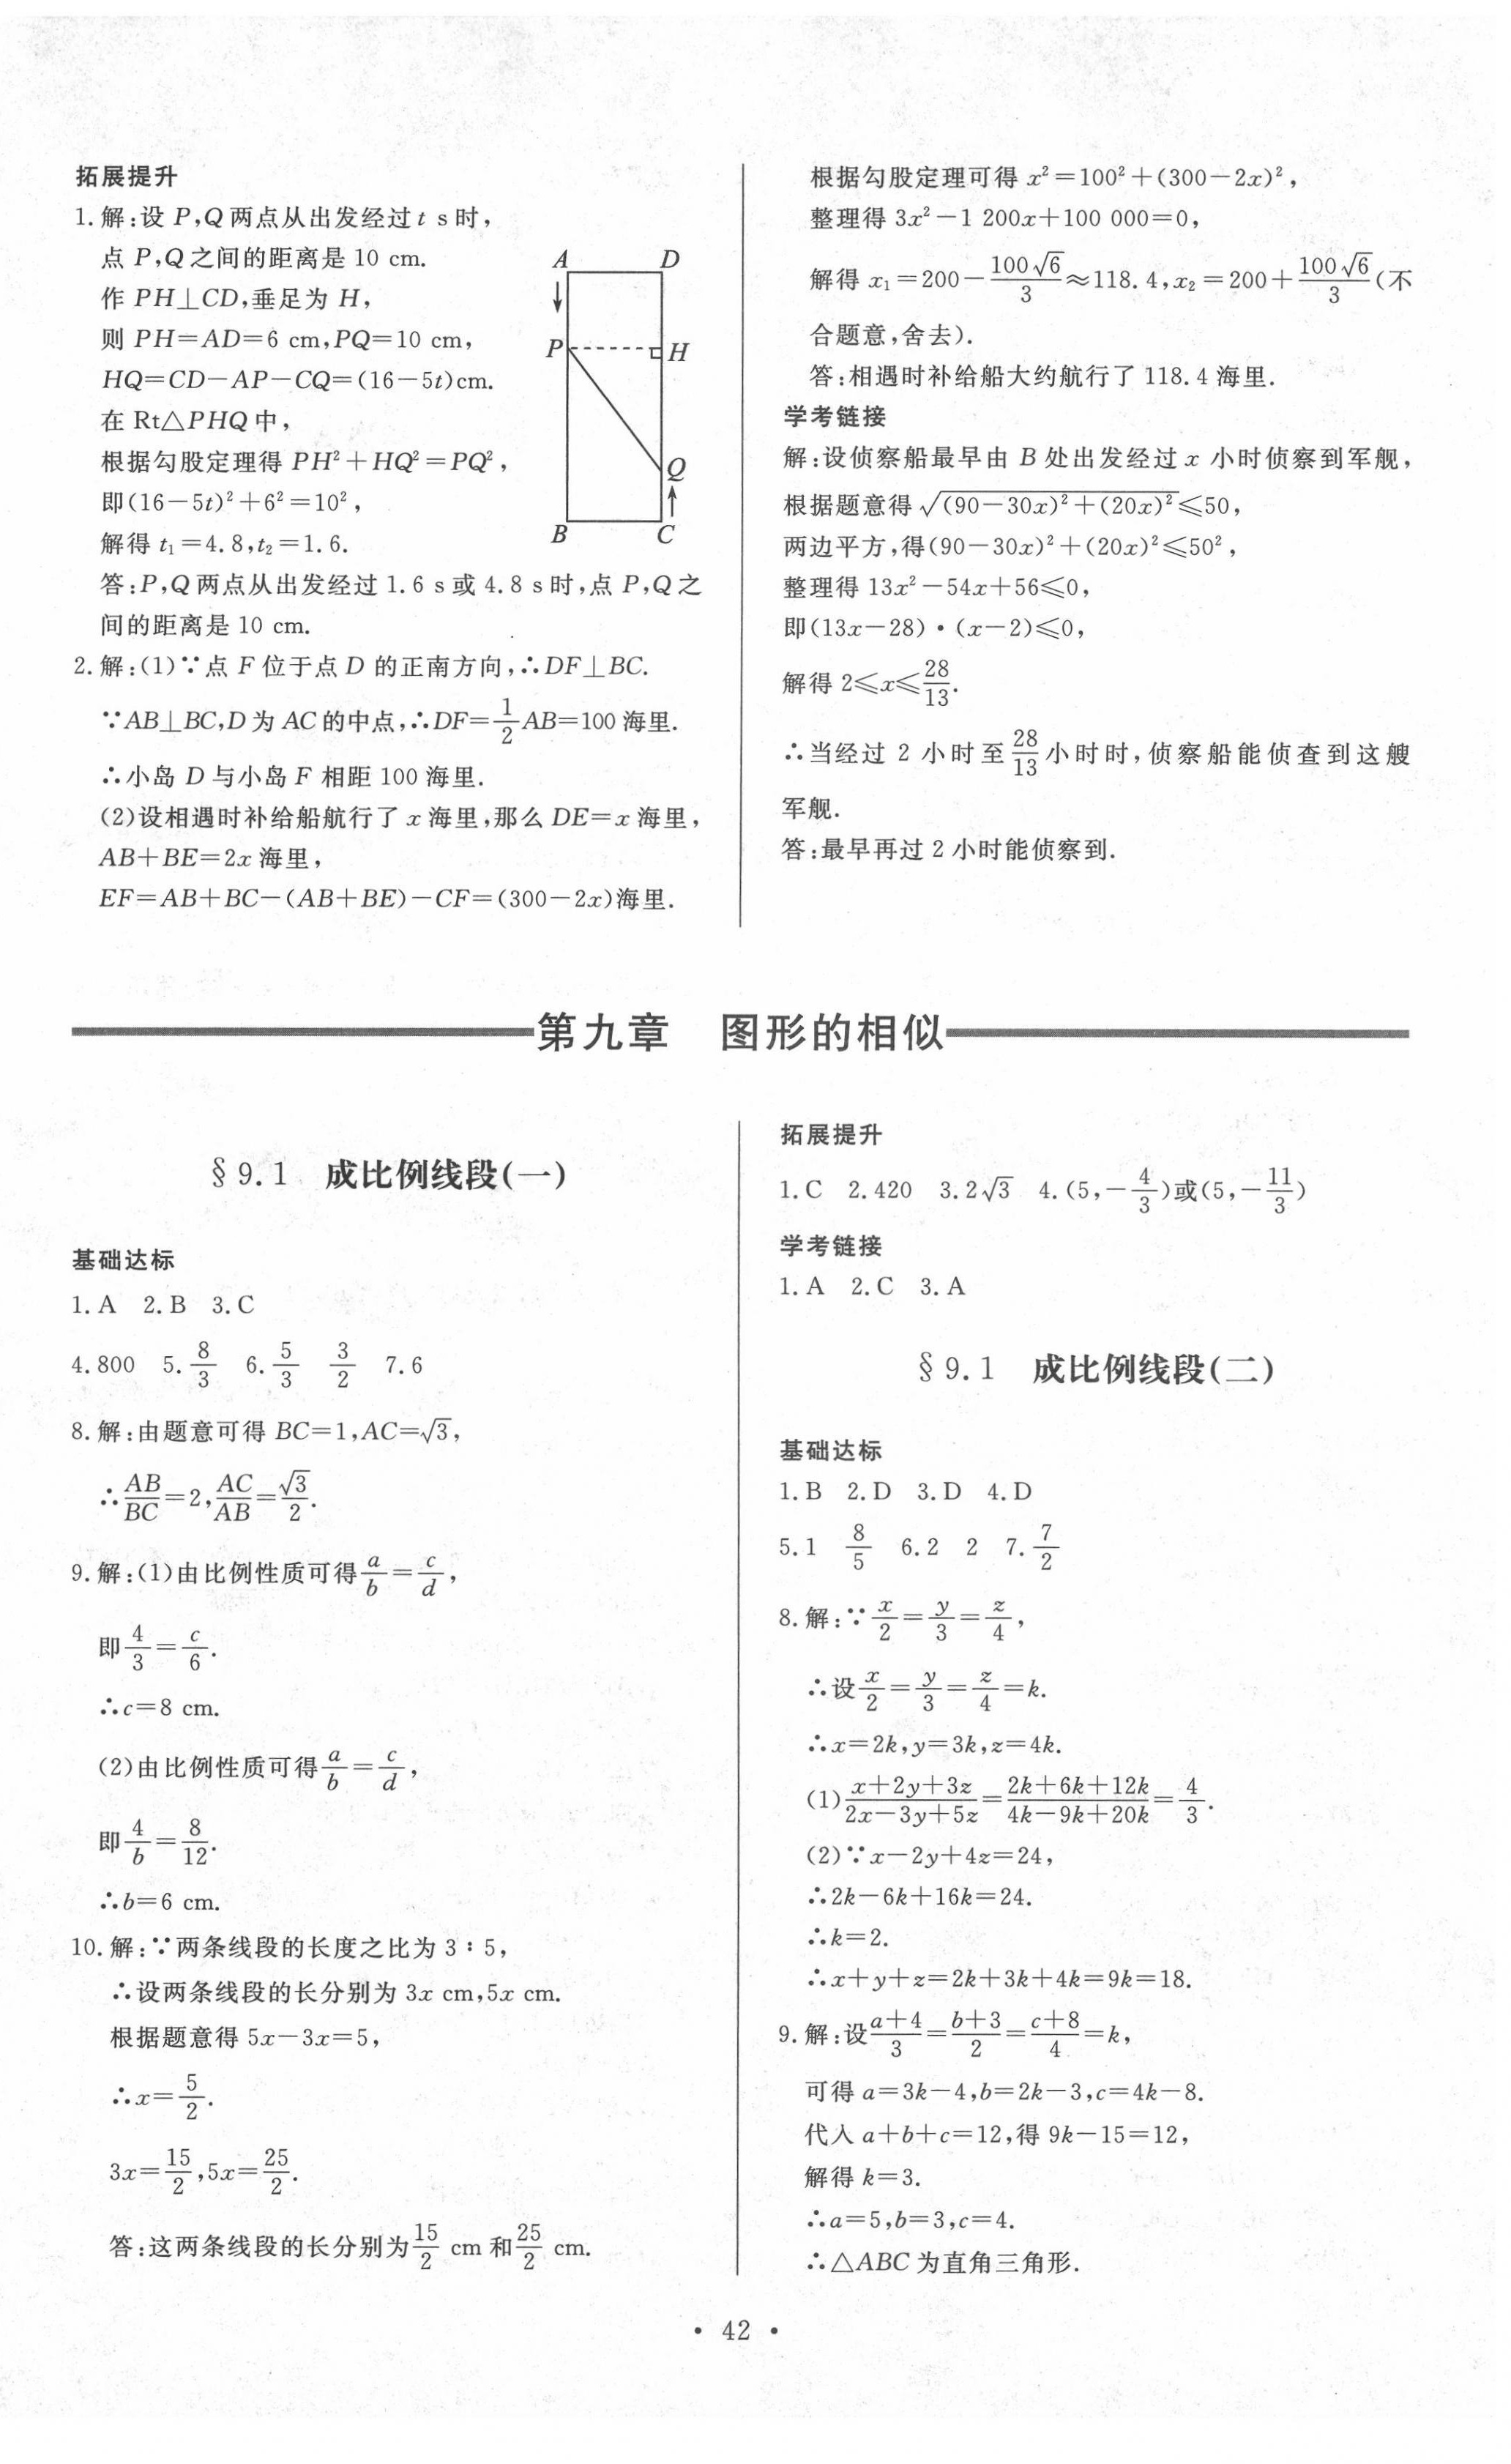 拓展提升
1.解:设 P,Q 两点从出发经过 t s 时,
点 P,Q 之间的距离是 10 cm.
作 PH⊥CD,垂足为 H,
则 PH=AD=6 cm,PQ=10 cm,
HQ=CD-AP-CQ=(16-5t)cm.
在 Rt△PHQ 中,
根据勾股定理得 PH²+HQ²=PQ²,
即(16-5t)²+6²=10²,
解得 t₁=4.8,t₂=1.6.
A D
P H
Q
B C
答:P,Q 两点从出发经过 1.6 s 或 4.8 s 时,点 P,Q 之
间的距离是 10 cm.
2.解:(1)∵点 F 位于点 D 的正南方向,∴DF⊥BC.
∵AB⊥BC,D 为 AC 的中点,∴DF=1/2AB=100 海里.
∴小岛 D 与小岛 F 相距 100 海里.
(2)设相遇时补给船航行了 x 海里,那么 DE=x 海里,
AB+BE=2x 海里,
EF=AB+BC-(AB+BE)-CF=(300-2x)海里.
根据勾股定理可得 x²=100²+(300-2x)²,
整理得 3x²-1 200x+100 000=0,
解得 x₁=200-100√6/3≈118.4,x₂=200+100√6/3(不
合题意,舍去).
答:相遇时补给船大约航行了 118.4 海里.
学考链接
解:设侦察船最早由 B 处出发经过 x 小时侦察到军舰,
根据题意得√((90-30x)²+(20x)²)≤50,
两边平方,得(90-30x)²+(20x)²≤50²,
整理得 13x²-54x+56≤0,
即(13x-28)·(x-2)≤0,
解得 2≤x≤28/13.
∴当经过 2 小时至28/13小时时,侦察船能侦查到这艘
军舰.
答:最早再过 2 小时能侦察到.
第九章 图形的相似
§9.1 成比例线段(一)
基础达标
1.A 2.B 3.C
4.800 5.8/3 6.5/3 3/2 7.6
8.解:由题意可得 BC=1,AC=√3,
∴AB/BC=2,AC/AB=√3/2.
9.解:(1)由比例性质可得a/b=c/d,
即4/3=c/6.
∴c=8 cm.
(2)由比例性质可得a/b=c/d,
即4/b=8/12.
∴b=6 cm.
10.解:∵两条线段的长度之比为 3∶5,
∴设两条线段的长分别为 3x cm,5x cm.
根据题意得 5x-3x=5,
∴x=5/2.
3x=15/2,5x=25/2.
答:这两条线段的长分别为15/2 cm 和25/2 cm.
拓展提升
1.C 2.420 3.2√3 4.(5,-4/3)或(5,-11/3)
学考链接
1.A 2.C 3.A
§9.1 成比例线段(二)
基础达标
1.B 2.D 3.D 4.D
5.1 8/5 6.2 2 7.7/2
8.解:∵x/2=y/3=z/4,
∴设x/2=y/3=z/4=k.
∴x=2k,y=3k,z=4k.
(1)(x+2y+3z)/(2x-3y+5z)=(2k+6k+12k)/(4k-9k+20k)=4/3.
(2)∵x-2y+4z=24,
∴2k-6k+16k=24.
∴k=2.
∴x+y+z=2k+3k+4k=9k=18.
9.解:设(a+4)/3=(b+3)/2=(c+8)/4=k,
可得 a=3k-4,b=2k-3,c=4k-8.
代入 a+b+c=12,得 9k-15=12,
解得 k=3.
∴a=5,b=3,c=4.
∴△ABC 为直角三角形.
· 42 ·